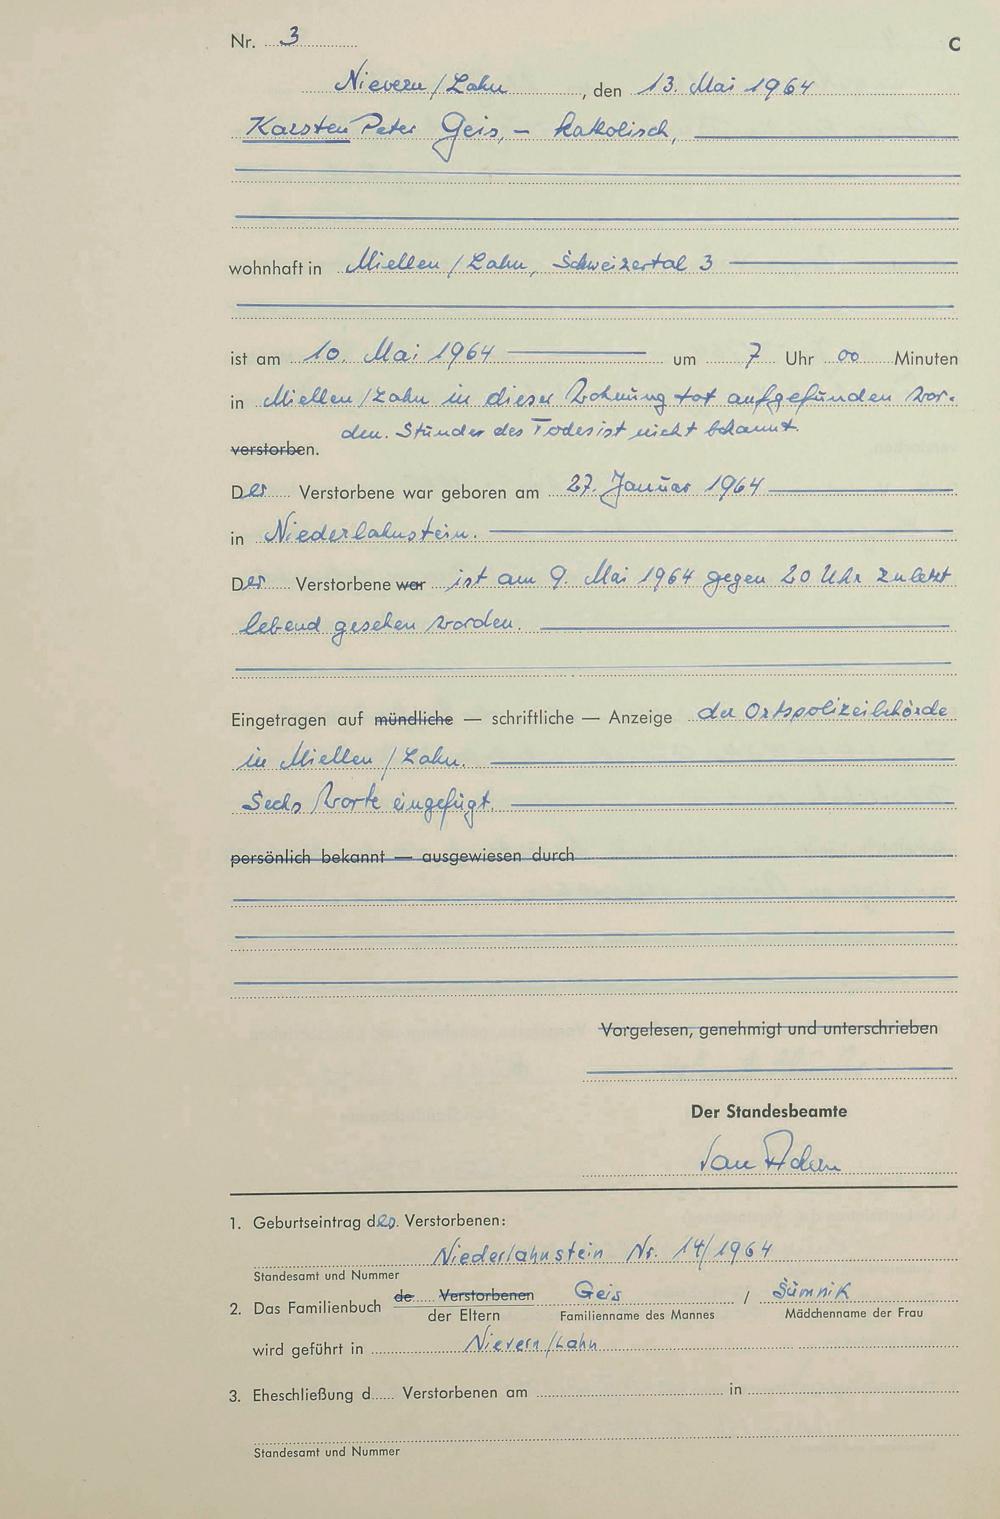 Nr. 3
C
Nievern/Lahn, den 13. Mai 1964
Karsten Peter Geis, – katholisch,
wohnhaft in Miellen/Lahn, Schweizertal 3
ist am 10. Mai 1964 um 7 Uhr 00 Minuten
in Miellen/Lahn in dieser Wohnung tot aufgefunden wor-
den. Stunde des Todes ist nicht bekannt.
verstorben.
Der Verstorbene war geboren am 27. Januar 1964
in Niederlahnstein.
Der Verstorbene war ist am 9. Mai 1964 gegen 20 Uhr zuletzt
lebend gesehen worden.
Eingetragen auf mündliche — schriftliche — Anzeige der Ortspolizeibehörde
in Miellen/Lahn.
Sechs Worte eingefügt.
persönlich bekannt — ausgewiesen durch
Vorgelesen, genehmigt und unterschrieben
Der Standesbeamte
1. Geburtseintrag des Verstorbenen:
Niederlahnstein Nr. 14/1964
Standesamt und Nummer
2. Das Familienbuch de Verstorbenen Geis / Sümnik
der Eltern Familienname des Mannes Mädchenname der Frau
wird geführt in Nievern/Lahn
3. Eheschließung d..... Verstorbenen am in
Standesamt und Nummer